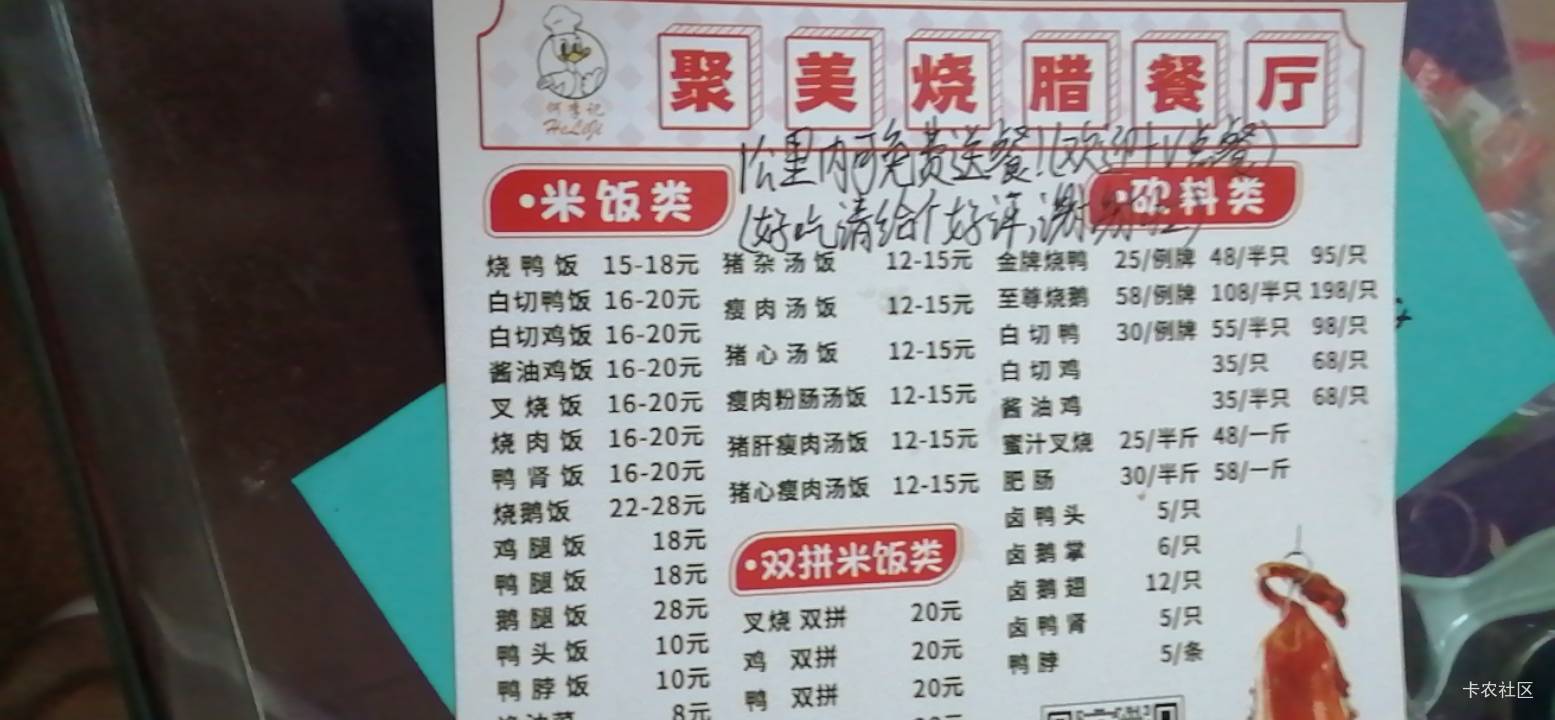 聚美烧腊餐厅
何李记
HeLiJi
1公里内可免费送餐!(欢迎+V点餐)
(好吃请给个好评,谢谢
•米饭类
烧鸭饭 15-18元
白切鸭饭 16-20元
白切鸡饭 16-20元
酱油鸡饭 16-20元
叉烧饭 16-20元
烧肉饭 16-20元
鸭肾饭 16-20元
烧鹅饭 22-28元
鸡腿饭 18元
鸭腿饭 18元
鹅腿饭 28元
鸭头饭 10元
鸭脖饭 10元
8元
猪杂汤饭 12-15元
瘦肉汤饭 12-15元
猪心汤饭 12-15元
瘦肉粉肠汤饭 12-15元
猪肝瘦肉汤饭 12-15元
猪心瘦肉汤饭 12-15元
•双拼米饭类
叉烧 双拼 20元
鸡 双拼 20元
鸭 双拼 20元
•砍料类
金牌烧鸭 25/例牌 48/半只 95/只
至尊烧鹅 58/例牌 108/半只 198/只
白切鸭 30/例牌 55/半只 98/只
白切鸡 35/只 68/只
酱油鸡 35/半只 68/只
蜜汁叉烧 25/半斤 48/一斤
肥肠 30/半斤 58/一斤
卤鸭头 5/只
卤鹅掌 6/只
卤鹅翅 12/只
卤鸭肾 5/只
鸭脖 5/条
卡农社区